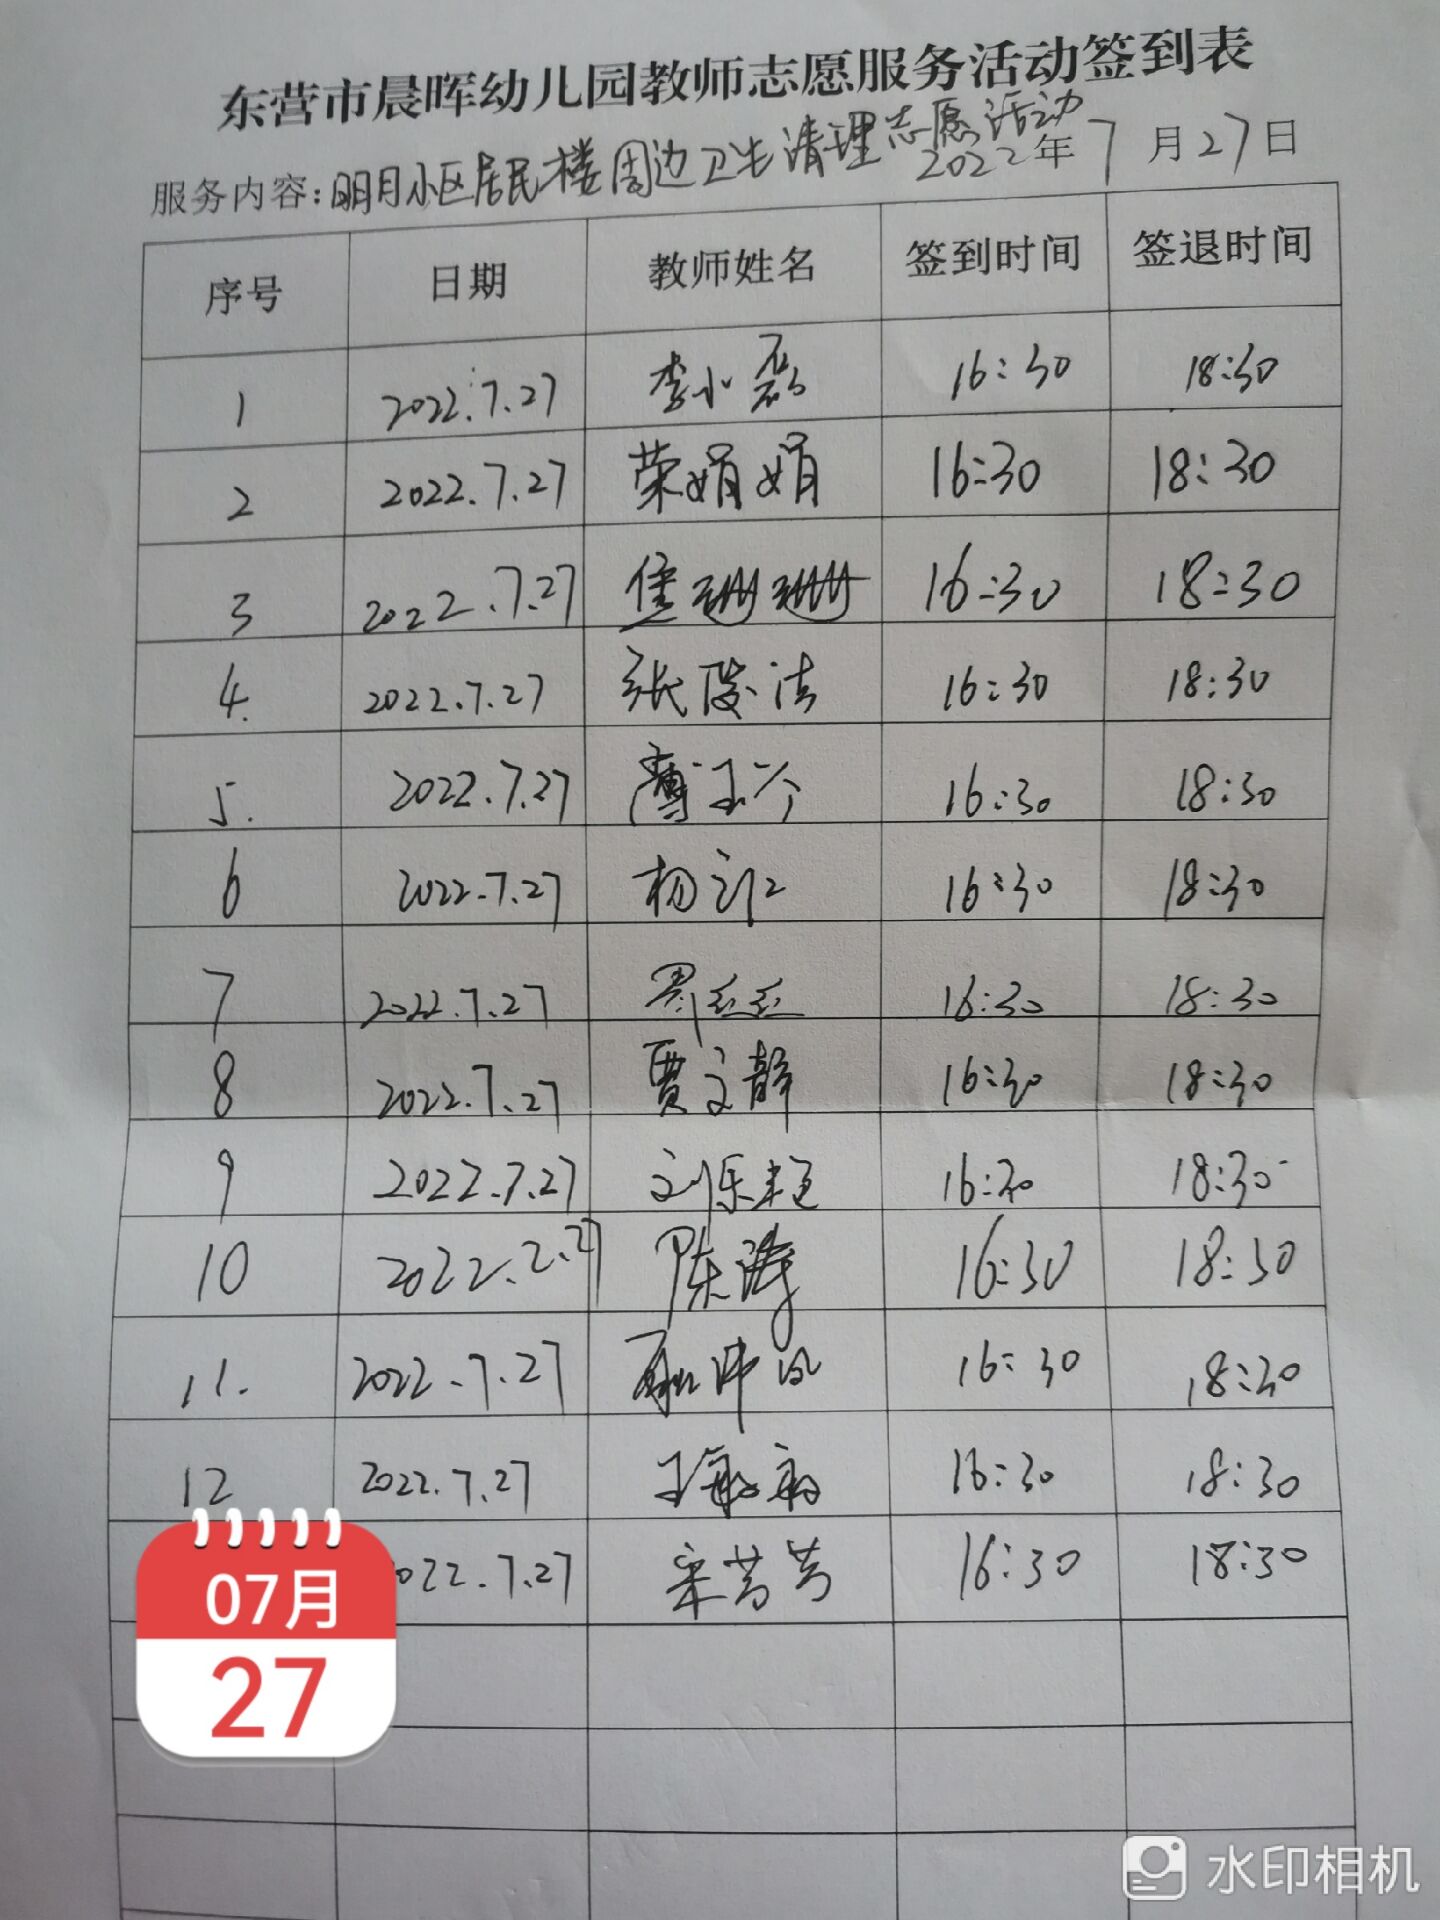 东营市晨晖幼儿园教师志愿服务活动签到表
服务内容:明月小区居民楼周边卫生清理志愿活动
2022年7月27日
序号 日期 教师姓名 签到时间 签退时间
1 2022.7.27 李小磊 16:30 18:30
2 2022.7.27 荣娟娟 16:30 18:30
3 2022.7.27 珊珊 16:30 18:30
4. 2022.7.27 张俊洁 16:30 18:30
5. 2022.7.27 16:30 18:30
6 2022.7.27 杨 16:30 18:30
7 2022.7.27 周丝丝 16:30 18:30
8 2022.7.27 贾文静 16:30 18:30
9 2022.7.27 刘乐 16:30 18:30
10 2022.2.27 陈涛 16:30 18:30
11. 2022.7.27 16:30 18:30
12 2022.7.27 王敏 16:30 18:30
022.7.27 宋芳芳 16:30 18:30
07月
27
水印相机